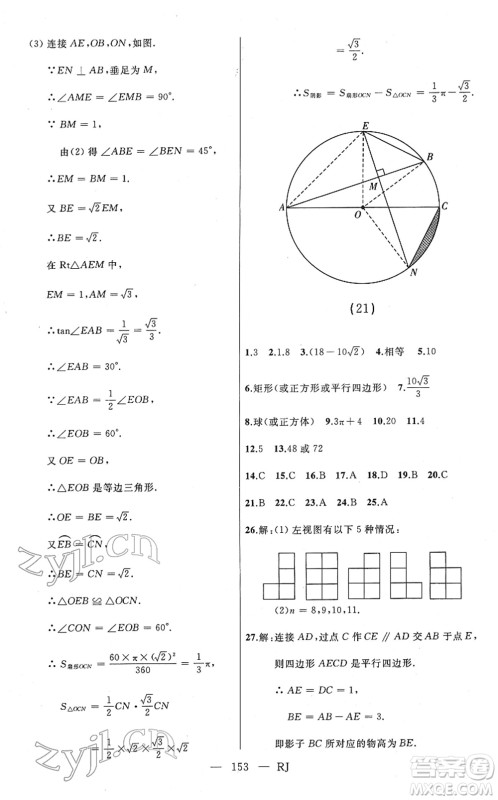 (3) 连接 AE,OB,ON,如图.
∵EN⊥AB,垂足为 M,
∴∠AME=∠EMB=90°.
∵BM=1,
由(2)得∠ABE=∠BEN=45°,
∴EM=BM=1.
又 BE=√2EM,
∴BE=√2.
在 Rt△AEM 中,
EM=1,AM=√3,
∴tan∠EAB=1/√3=√3/3.
∴∠EAB=30°.
∵∠EAB=1/2∠EOB,
∴∠EOB=60°.
又 OE=OB,
∴△EOB 是等边三角形.
∴OE=BE=√2.
又EB=CN,
∴BE=CN=√2.
∴△OEB≌△OCN.
∴∠CON=∠BOE=60°.
∴S扇形OCN=60×π×(√2)²/360=1/3π,
S△OCN=1/2CN·√3/2CN
=1/2×√2×√3/2×√2
=√3/2.
∴S阴影=S扇形OCN-S△OCN=1/3π-√3/2.
E
B
M
A
O
C
N
(21)
1.3 2.1.8 3.(18-10√2) 4.相等 5.10
6.矩形(或正方形或平行四边形) 7.10√3/3
8.球(或正方体) 9.3π+4 10.20 11.4
12.5 13.48 或 72
14.C 15.C 16.D 17.B 18.A 19.D 20.C
21.B 22.B 23.C 24.D 25.A
26.解:(1)左视图有以下 5 种情况:
(2)n=8,9,10,11.
27.解:连接 AD,过点 C 作 CE∥AD 交 AB 于点 E,
则四边形 AECD 是平行四边形.
∴AE=DC=1.
∴BE=AB-AE=3.
即影子 BC 所对应的物高为 BE.
— 153 — RJ
zyjl.cn
zyjl.cn